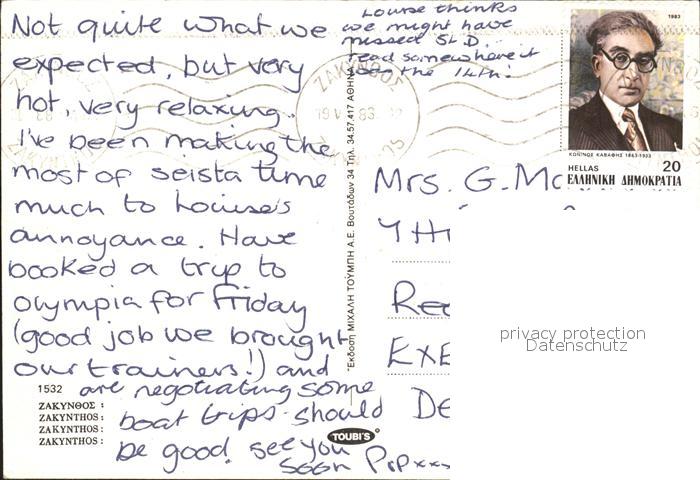 Not quite what we
expected, but very
hot, very relaxing.
I've been making the
most of seista time
much to Louise's
annoyance. Have
booked a trip to
Olympia for Friday
(good job we brought
our trainers!) and
are negotiating some
boat trips - should
be good. see you
soon PSP xxx
Louise thinks
we might have
missed St. D..
read somewhere it
was the 14th!
1532
ΖΑΚΥΝΘΟΣ :
ZAKYNTHOS :
ZAKYNTHOS :
ZAKYNTHOS :
Έκδοση ΜΙΧΑΛΗ ΤΟΥΜΠΗ Α.Ε. Βουτάδων 34 Τηλ. 34.57.417 ΑΘΗΝΑ
TOUBI'S
ΖΑΚΥΝΘΟΣ
19 83
ZAKYNTHOS
1983
ΚΩΝ/ΝΟΣ ΚΑΒΑΦΗΣ 1863-1933
HELLAS 20
ΕΛΛΗΝΙΚΗ ΔΗΜΟΚΡΑΤΙΑ
Mrs. G. Mc
4 H
Re
EXE
DE
privacy protection
Datenschutz